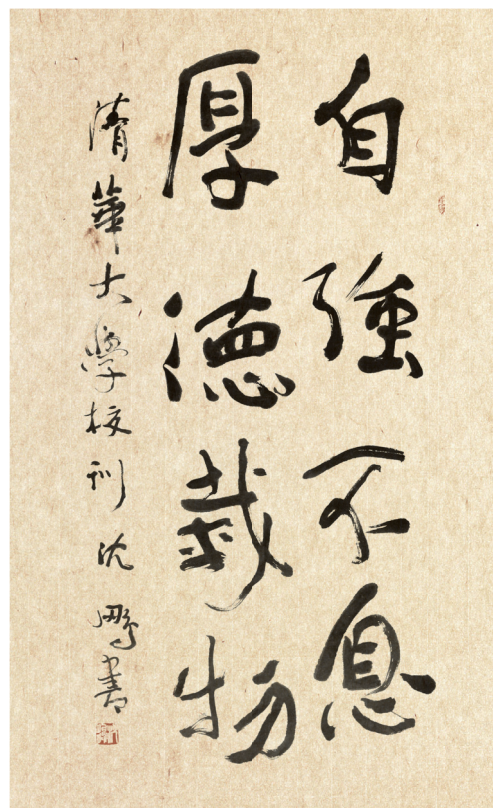 自強不息
厚德載物
清華大學校训 沈鵬書